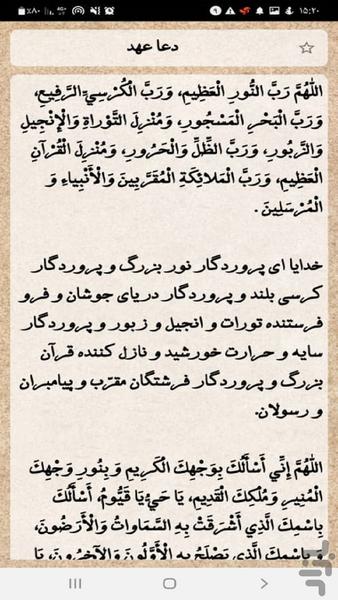 ۱۵:۲۰
%۸۰
دعا عهد
اللهُمَّ رَبَّ النُّورِ الْعَظِيمِ، وَرَبَّ الْكُرْسِيِّ الرَّفِيعِ،
وَرَبَّ الْبَحْرِ الْمَسْجُورِ، وَمُنْزِلَ التَّوْرَاةِ وَالْإِنْجِيلِ
وَالزَّبُورِ، وَرَبَّ الظِّلِّ وَالْحَرُورِ، وَمُنْزِلَ الْقُرْآنِ
الْعَظِيمِ، وَرَبَّ الْمَلائِكَةِ الْمُقَرَّبِينَ وَالْأَنْبِياءِ وَ
الْمُرْسَلِينَ .
خدایا ای پروردگار نور بزرگ و پروردگار
کرسی بلند و پروردگار دریای جوشان و فرو
فرستنده تورات و انجیل و زبور و پروردگار
سایه و حرارت خورشید و نازل کننده قرآن
بزرگ و پروردگار فرشتگان مقرّب و پیامبران
و رسولان.
اللهُمَّ إِنِّي أَسْأَلُكَ بِوَجْهِكَ الْكَرِيمِ وَبِنُورِ وَجْهِكَ
الْمُنِيرِ وَمُلْكِكَ الْقَدِيمِ، يَا حَيُّ يَا قَيُّومُ، أَسْأَلُكَ
بِاسْمِكَ الَّذِي أَشْرَقَتْ بِهِ السَّمَاوَاتُ وَالْأَرَضُونَ،
وَبِاسْمِكَ الَّذِي يَصْلَحُ بِهِ الْأَوَّلُونَ وَالآخِرُونَ، يَا